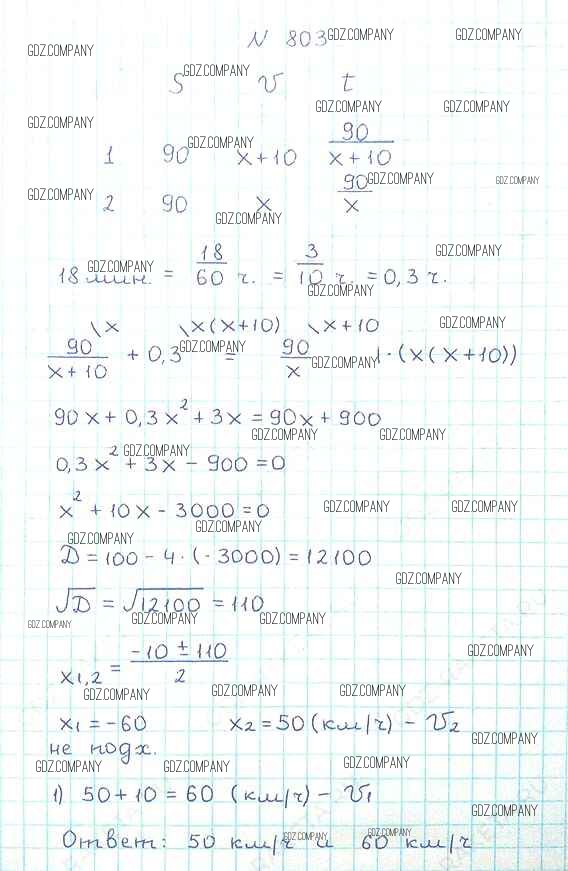 N 803
S V t
1 90 x+10 90/(x+10)
2 90 x 90/x
18 мин. = 18/60 ч. = 3/10 ч. = 0,3 ч.
\x \x(x+10) \x+10
90/(x+10) + 0,3 = 90/x | · (x(x+10))
90x + 0,3x² + 3x = 90x + 900
0,3x² + 3x - 900 = 0
x² + 10x - 3000 = 0
D = 100 - 4 · (-3000) = 12100
√D = √12100 = 110
x1,2 = (-10 ± 110)/2
x1 = -60 x2 = 50 (км/ч) - V2
не подх.
1) 50 + 10 = 60 (км/ч) - V1
Ответ: 50 км/ч и 60 км/ч
GDZ.COMPANY